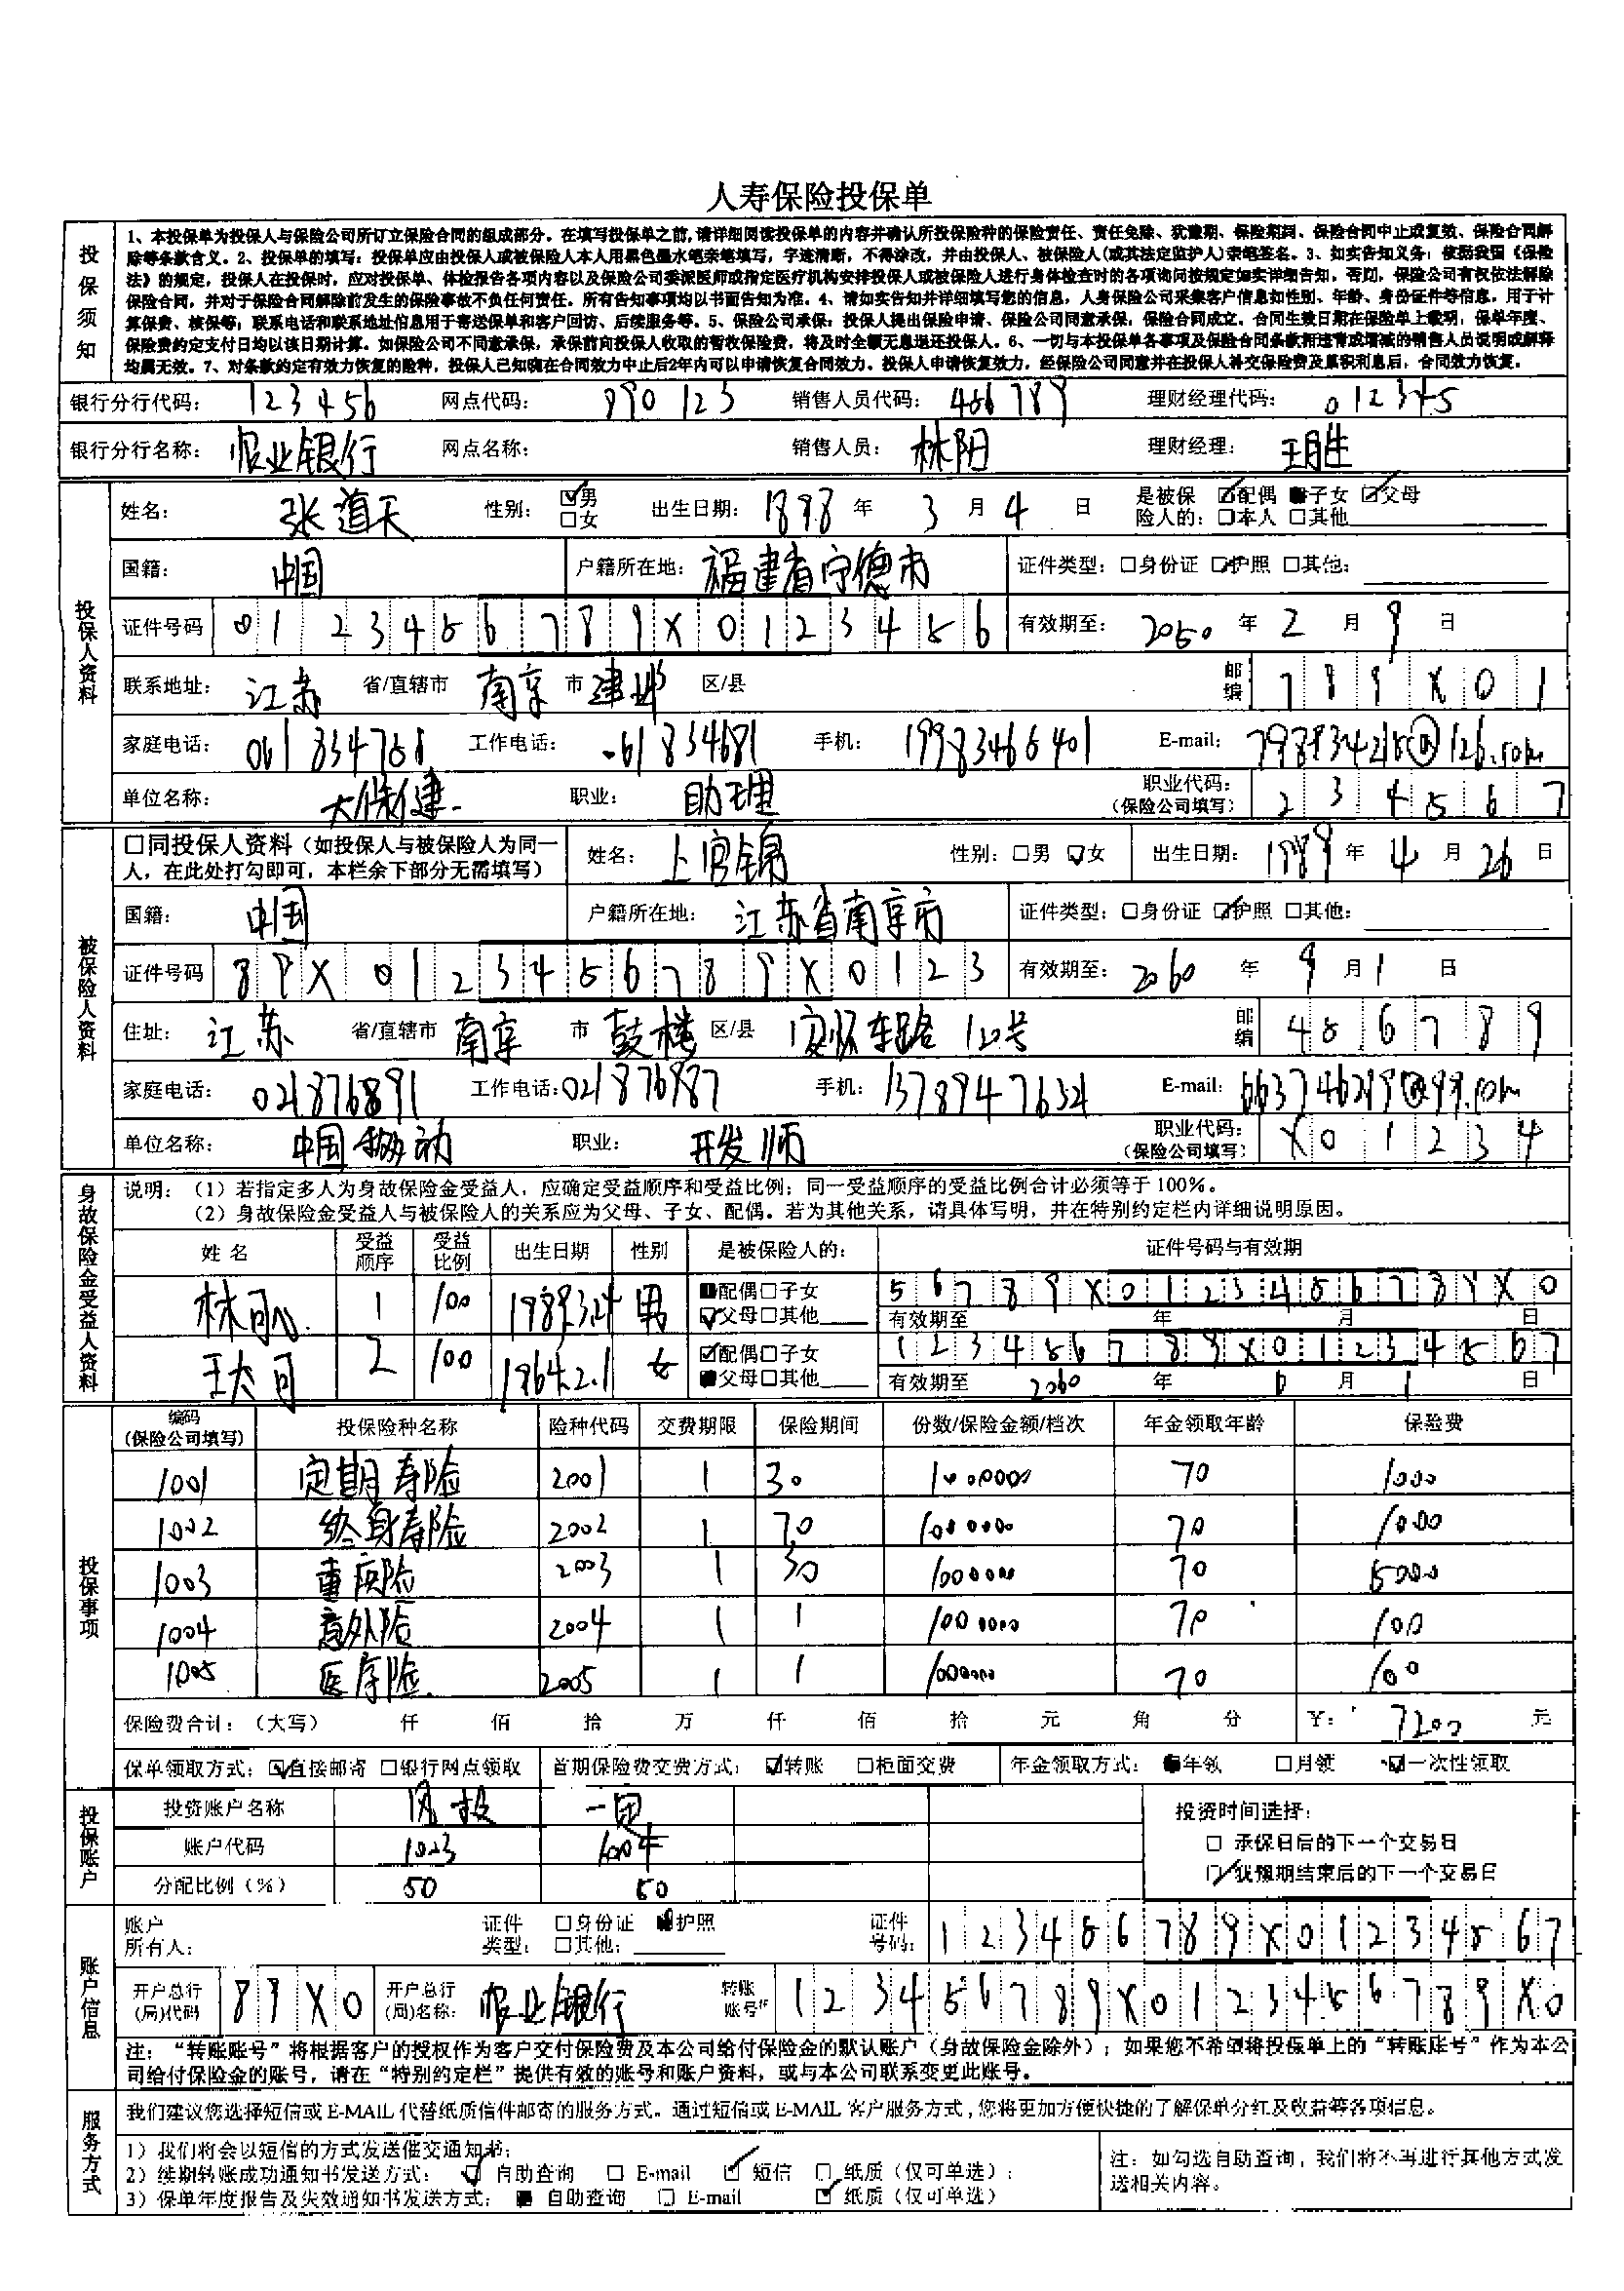 人寿保险投保单
投保须知
1、本投保单为投保人与保险公司所订立保险合同的组成部分。在填写投保单之前,请详细阅读投保单的内容并确认所投保险种的保险责任、责任免除、犹豫期、保险期间、保险合同中止或复效、保险合同解
除等条款含义。2、投保单的填写：投保单应由投保人或被保险人本人用黑色墨水笔亲笔填写，字迹清晰，不得涂改，并由投保人、被保险人(或其法定监护人)亲笔签名。3、如实告知义务：依据我国《保险
法》的规定，投保人在投保时，应对投保单、体检报告各项内容以及保险公司委派医师或指定医疗机构安排投保人或被保险人进行身体检查时的各项询问按规定如实详细告知，否则，保险公司有权依法解除
保险合同，并对于保险合同解除前发生的保险事故不负任何责任。所有告知事项均以书面告知为准。4、请如实告知并详细填写您的信息，人身保险公司采集客户信息如性别、年龄、身份证件等信息，用于计
算保费、核保等；联系电话和联系地址信息用于寄送保单和客户回访、后续服务等。5、保险公司承保：投保人提出保险申请、保险公司同意承保，保险合同成立。合同生效日期在保险单上载明，保单年度、
保险费约定支付日均以该日期计算。如保险公司不同意承保，承保前向投保人收取的暂收保险费，将及时全额无息退还投保人。6、一切与本投保单各事项及保险合同条款相违背或增减的销售人员说明或解释
均属无效。7、对条款约定有效力恢复的险种，投保人已知晓在合同效力中止后2年内可以申请恢复合同效力。投保人申请恢复效力，经保险公司同意并在投保人补交保险费及累积利息后，合同效力恢复。
银行分行代码： 123456 网点代码： 890123 销售人员代码： 456789 理财经理代码： 012345
银行分行名称： 农业银行 网点名称： 销售人员： 林阳 理财经理： 王胜
投保人资料
姓名： 张道天 性别： ☑男 □女 出生日期： 1898 年 3 月 4 日 是被保险人的： ☑配偶 ■子女 ☑父母 □本人 □其他
国籍： 中国 户籍所在地： 福建省宁德市 证件类型：□身份证 ☑护照 □其他：
证件号码 0123456789X0123456 有效期至： 2050 年 2 月 9 日
联系地址： 江苏 省/直辖市 南京 市 建邺 区/县 邮编 789X01
家庭电话： 工作电话： 手机： 19983466401 E-mail：
单位名称： 大保健 职业： 助理 职业代码：（保险公司填写） 234567
被保险人资料
□同投保人资料（如投保人与被保险人为同一人，在此处打勾即可，本栏余下部分无需填写） 姓名： 上官锦 性别：□男 ☑女 出生日期： 1989 年 4 月 26 日
国籍： 中国 户籍所在地： 江苏省南京市 证件类型：□身份证 ☑护照 □其他：
证件号码 89X0123456789X0123 有效期至： 2060 年 9 月 1 日
住址： 江苏 省/直辖市 南京 市 鼓楼 区/县 安怀东路 120号 邮编 456789
家庭电话： 021876891 工作电话： 021876987 手机： 13789477634 E-mail：
单位名称： 中国移动 职业： 开发师 职业代码：（保险公司填写） X01234
身故保险金受益人资料
说明：（1）若指定多人为身故保险金受益人，应确定受益顺序和受益比例；同一受益顺序的受益比例合计必须等于100%。
（2）身故保险金受益人与被保险人的关系应为父母、子女、配偶。若为其他关系，请具体写明，并在特别约定栏内详细说明原因。
姓 名 受益顺序 受益比例 出生日期 性别 是被保险人的： 证件号码与有效期
林可心 1 100 1989.3.24 男 ■配偶□子女 ☑父母□其他 56789X0123456789X0
有效期至 年 月 日
王大可 2 100 1964.2.1 女 ☑配偶□子女 ■父母□其他 123456789X01234567
有效期至 2060 年 月 1 日
投保事项
编码（保险公司填写） 投保险种名称 险种代码 交费期限 保险期间 份数/保险金额/档次 年金领取年龄 保险费
1001 定期寿险 2001 1 30 1000000 70 1000
1002 终身寿险 2002 1 70 1000000 70 1000
1003 重疾险 2003 1 30 1000000 70 5000
1004 意外险 2004 1 1 1000000 70 100
1005 医疗险 2005 1 1 1000000 70 100
保险费合计：（大写） 仟 佰 拾 万 仟 佰 拾 元 角 分 ￥： 7200 元
保单领取方式：☑直接邮寄 □银行网点领取 首期保险费交费方式：☑转账 □柜面交费 年金领取方式：■年领 □月领 ☑一次性领取
投保账户
投资账户名称 风投
账户代码 1023 6004
分配比例（%） 50 50
投资时间选择：
□ 承保日后的下一个交易日
☑ 犹豫期结束后的下一个交易日
账户信息
账户所有人： 证件类型： □身份证 ■护照 □其他： 证件号码： 123456789X01234567
开户总行(局)代码 89X0 开户总行(局)名称： 农业银行 转账账号 123456789X0123456789X0
注：“转账账号”将根据客户的授权作为客户交付保险费及本公司给付保险金的默认账户（身故保险金除外）；如果您不希望将投保单上的“转账账号”作为本公
司给付保险金的账号，请在“特别约定栏”提供有效的账号和账户资料，或与本公司联系变更此账号。
服务方式
我们建议您选择短信或E-MAIL代替纸质信件邮寄的服务方式。通过短信或E-MAIL客户服务方式,您将更加方便快捷的了解保单分红及收益等各项信息。
1）我们将会以短信的方式发送催交通知书；
2）续期转账成功通知书发送方式： ☑ 自助查询 □ E-mail ☑ 短信 □ 纸质（仅可单选）；
3）保单年度报告及失效通知书发送方式： ■ 自助查询 □ E-mail ☑ 纸质（仅可单选）
注：如勾选自助查询，我们将不再进行其他方式发
送相关内容。